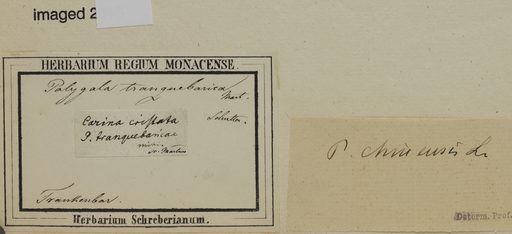 imaged 2
HERBARIUM REGIUM MONACENSE.
Polygala tranquebarica
Mart.
Carina cristata
P. tranquebaricae
mihi.
v. Martius
Trankenbar.
Herbarium Schreberianum.
P. chinensis L.
Determ. Prof.